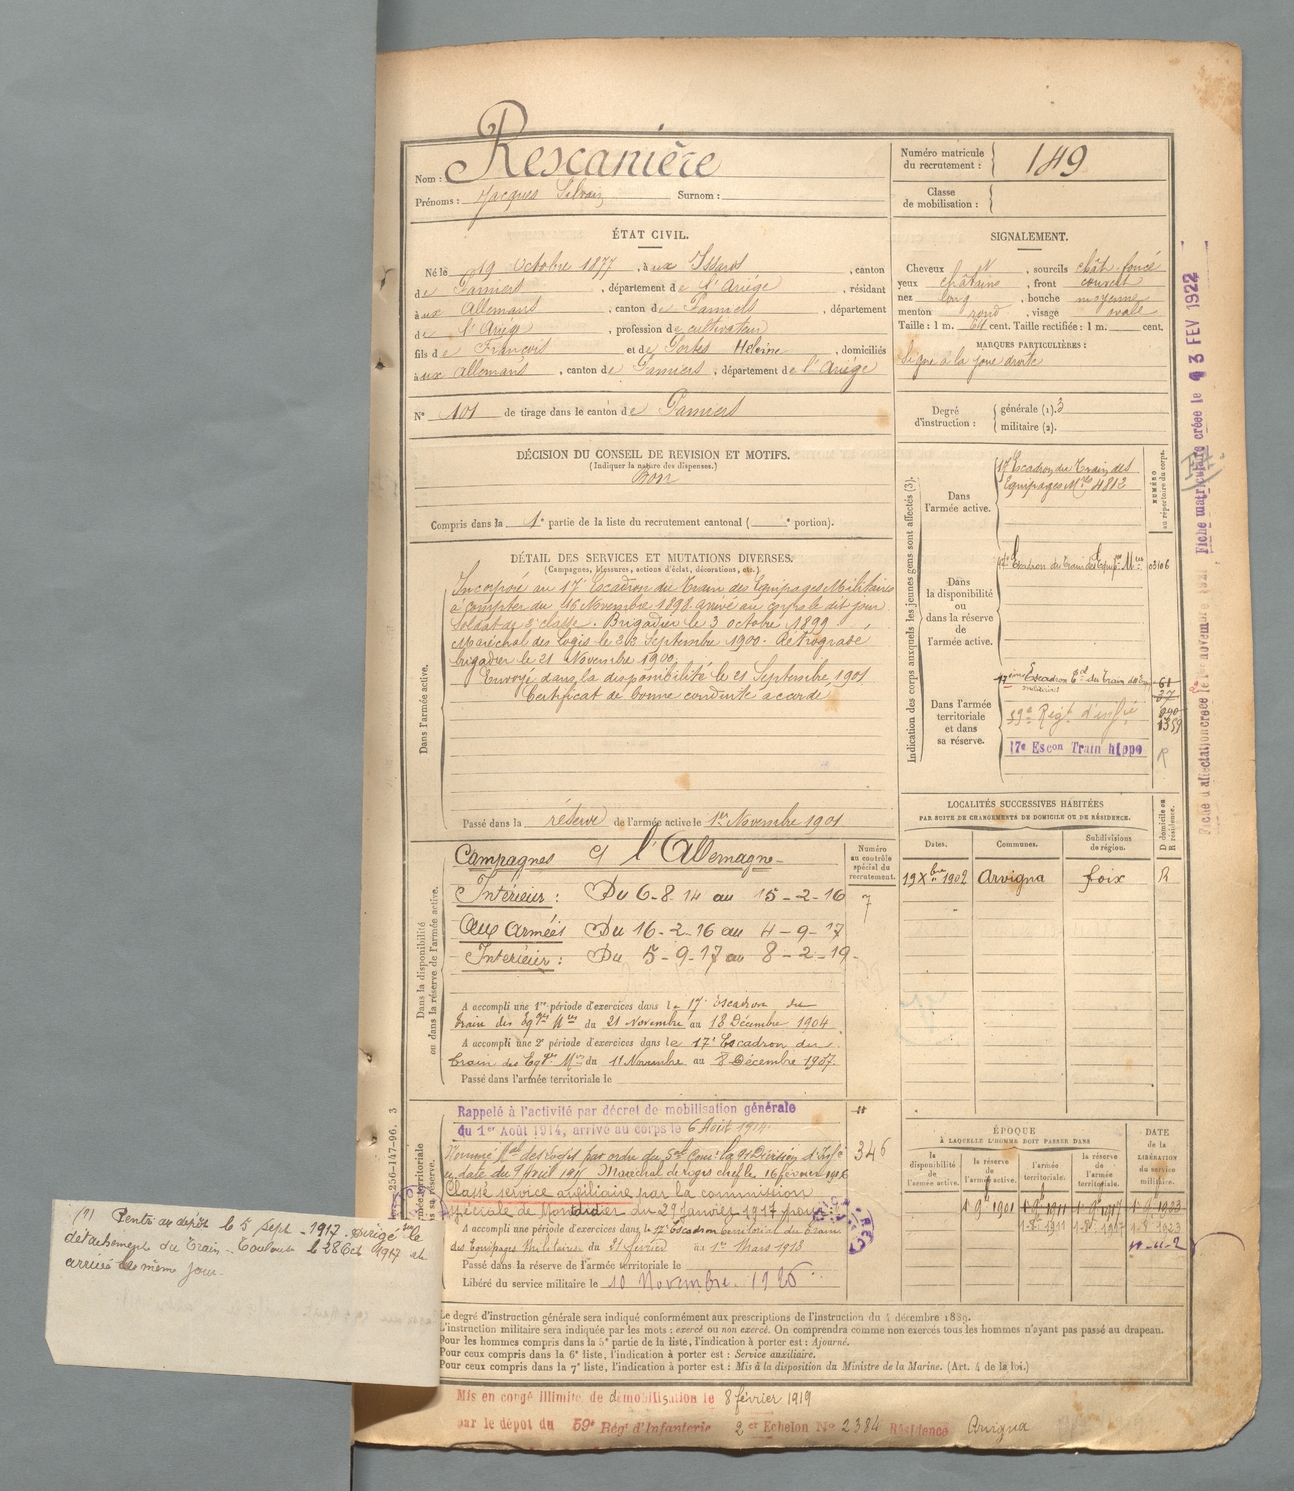 Nom : Rescanière
Prénoms : Jacques Silvain Surnom :
Numéro matricule du recrutement : 149
Classe de mobilisation :
ÉTAT CIVIL.
Né le 19 Octobre 1877, à ux Issards, canton
de Pamiers, département de l'Ariége, résidant
à ux Allemans, canton de Pamiers, département
de l'Ariége, profession de cultivateur
fils de François et de Portes Heleine, domiciliés
à ux Allemans, canton de Pamiers, département de l'Ariége
N° 101 de tirage dans le canton de Pamiers
SIGNALEMENT.
Cheveux N, sourcils chât. foncé
yeux châtains, front couvert
nez long, bouche moyenne
menton rond, visage ovale
Taille : 1 m. 61 cent. Taille rectifiée : 1 m. cent.
MARQUES PARTICULIÈRES :
Signe à la joue droite
Degré d'instruction : générale (1). 3
militaire (2).
DÉCISION DU CONSEIL DE REVISION ET MOTIFS.
(Indiquer la nature des dispenses.)
Bon
Compris dans la 1e partie de la liste du recrutement cantonal ( e portion).
DÉTAIL DES SERVICES ET MUTATIONS DIVERSES.
(Campagnes, blessures, actions d'éclat, décorations, etc.)
Dans l'armée active.
Incorporé au 17e Escadron du Train des Equipages Militaires
à compter du 16 Novembre 1898 arrivé au corps le dit jour
soldat de 2e classe. Brigadier le 3 octobre 1899
Maréchal des Logis le 23 Septembre 1900. Rétrogradé
brigadier le 21 Novembre 1900.
Envoyé dans la disponibilité le 21 Septembre 1901
Certificat de bonne conduite accordé
Passé dans la réserve de l'armée active le 1er Novembre 1901
Indication des corps auxquels les jeunes gens sont affectés (3).
NUMÉRO au répertoire du corps.
Dans l'armée active.
17e Escadron du Train des
Equipages Mres 4812
Dans la disponibilité ou dans la réserve de l'armée active.
17e Escadron du Train des Equip. Mres 03106
Dans l'armée territoriale et dans sa réserve.
17ième Escadron Erial du Train des Eq
militaires
59e Régt d'infie
1359
17e Escon Train hippo R
Fiche matriculaire créée le 3 FEV 1922
LOCALITÉS SUCCESSIVES HABITÉES
PAR SUITE DE CHANGEMENTS DE DOMICILE OU DE RÉSIDENCE.
D domicile ou R résidence.
Dates. Communes. Subdivisions de région.
19 Xbre 1902 Arvigna foix R
Dans la disponibilité ou dans la réserve de l'armée active.
Numéro au contrôle spécial du recrutement.
Campagnes C/ l'Allemagne
Intérieur : Du 6-8-14 au 15-2-16
7
Aux Armées Du 16-2-16 au 4-9-17
Intérieur : Du 5-9-17 au 8-2-19.
A accompli une 1re période d'exercices dans le 17e Escadron du
Train des Eqges Mres du 21 Novembre au 18 Décembre 1904.
A accompli une 2e période d'exercices dans le 17e Escadron du
Train des Eqges Mres du 11 Novembre au 8 Décembre 1907.
Passé dans l'armée territoriale le
Rappelé à l'activité par décret de mobilisation générale
du 1er Août 1914, arrivé au corps le 6 Août 1914.
Nommé Mal des Logis par ordre du Sal Const la 91e Division d'Infie
346
en date du 9 Avril 1915 Maréchal des Logis chef le 16 février 1916
Classé service auxiliaire par la commission
spéciale de Montdidier du 27 Janvier 1917 pour
A accompli une période d'exercices dans le 17e Escadron territorial du Train
des Equipages Militaires du 21 février au 1er Mars 1913
Passé dans la réserve de l'armée territoriale le
Libéré du service militaire le 10 Novembre 1926
ÉPOQUE
À LAQUELLE L'HOMME DOIT PASSER DANS
la disponibilité de l'armée active.
la réserve de l'armée active.
l'armée territoriale.
la réserve de l'armée territoriale.
DATE de la LIBÉRATION du service militaire.
1er 9bre 1901 1er 9bre 1911 1er 9bre 1917 1er 9bre 1923
256-147-96. 3
(?) Rentré au dépôt le 5 sept. 1917. Dirigé sur le
détachement du Train. Toulouse le 28 Oct 1917 et
arrivé le même jour.
Le degré d'instruction générale sera indiqué conformément aux prescriptions de l'instruction du 4 décembre 1889.
L'instruction militaire sera indiquée par les mots : exercé ou non exercé. On comprendra comme non exercés tous les hommes n'ayant pas passé au drapeau.
Pour les hommes compris dans la 5e partie de la liste, l'indication à porter est : Ajourné.
Pour ceux compris dans la 6e liste, l'indication à porter est : Service auxiliaire.
Pour ceux compris dans la 7e liste, l'indication à porter est : Mis à la disposition du Ministre de la Marine. (Art. 4 de la loi.)
Mis en congé illimité de démobilisation le 8 février 1919
par le dépôt du 59e Régt d'Infanterie 2er Echelon No 2384 Résidence Arvigna